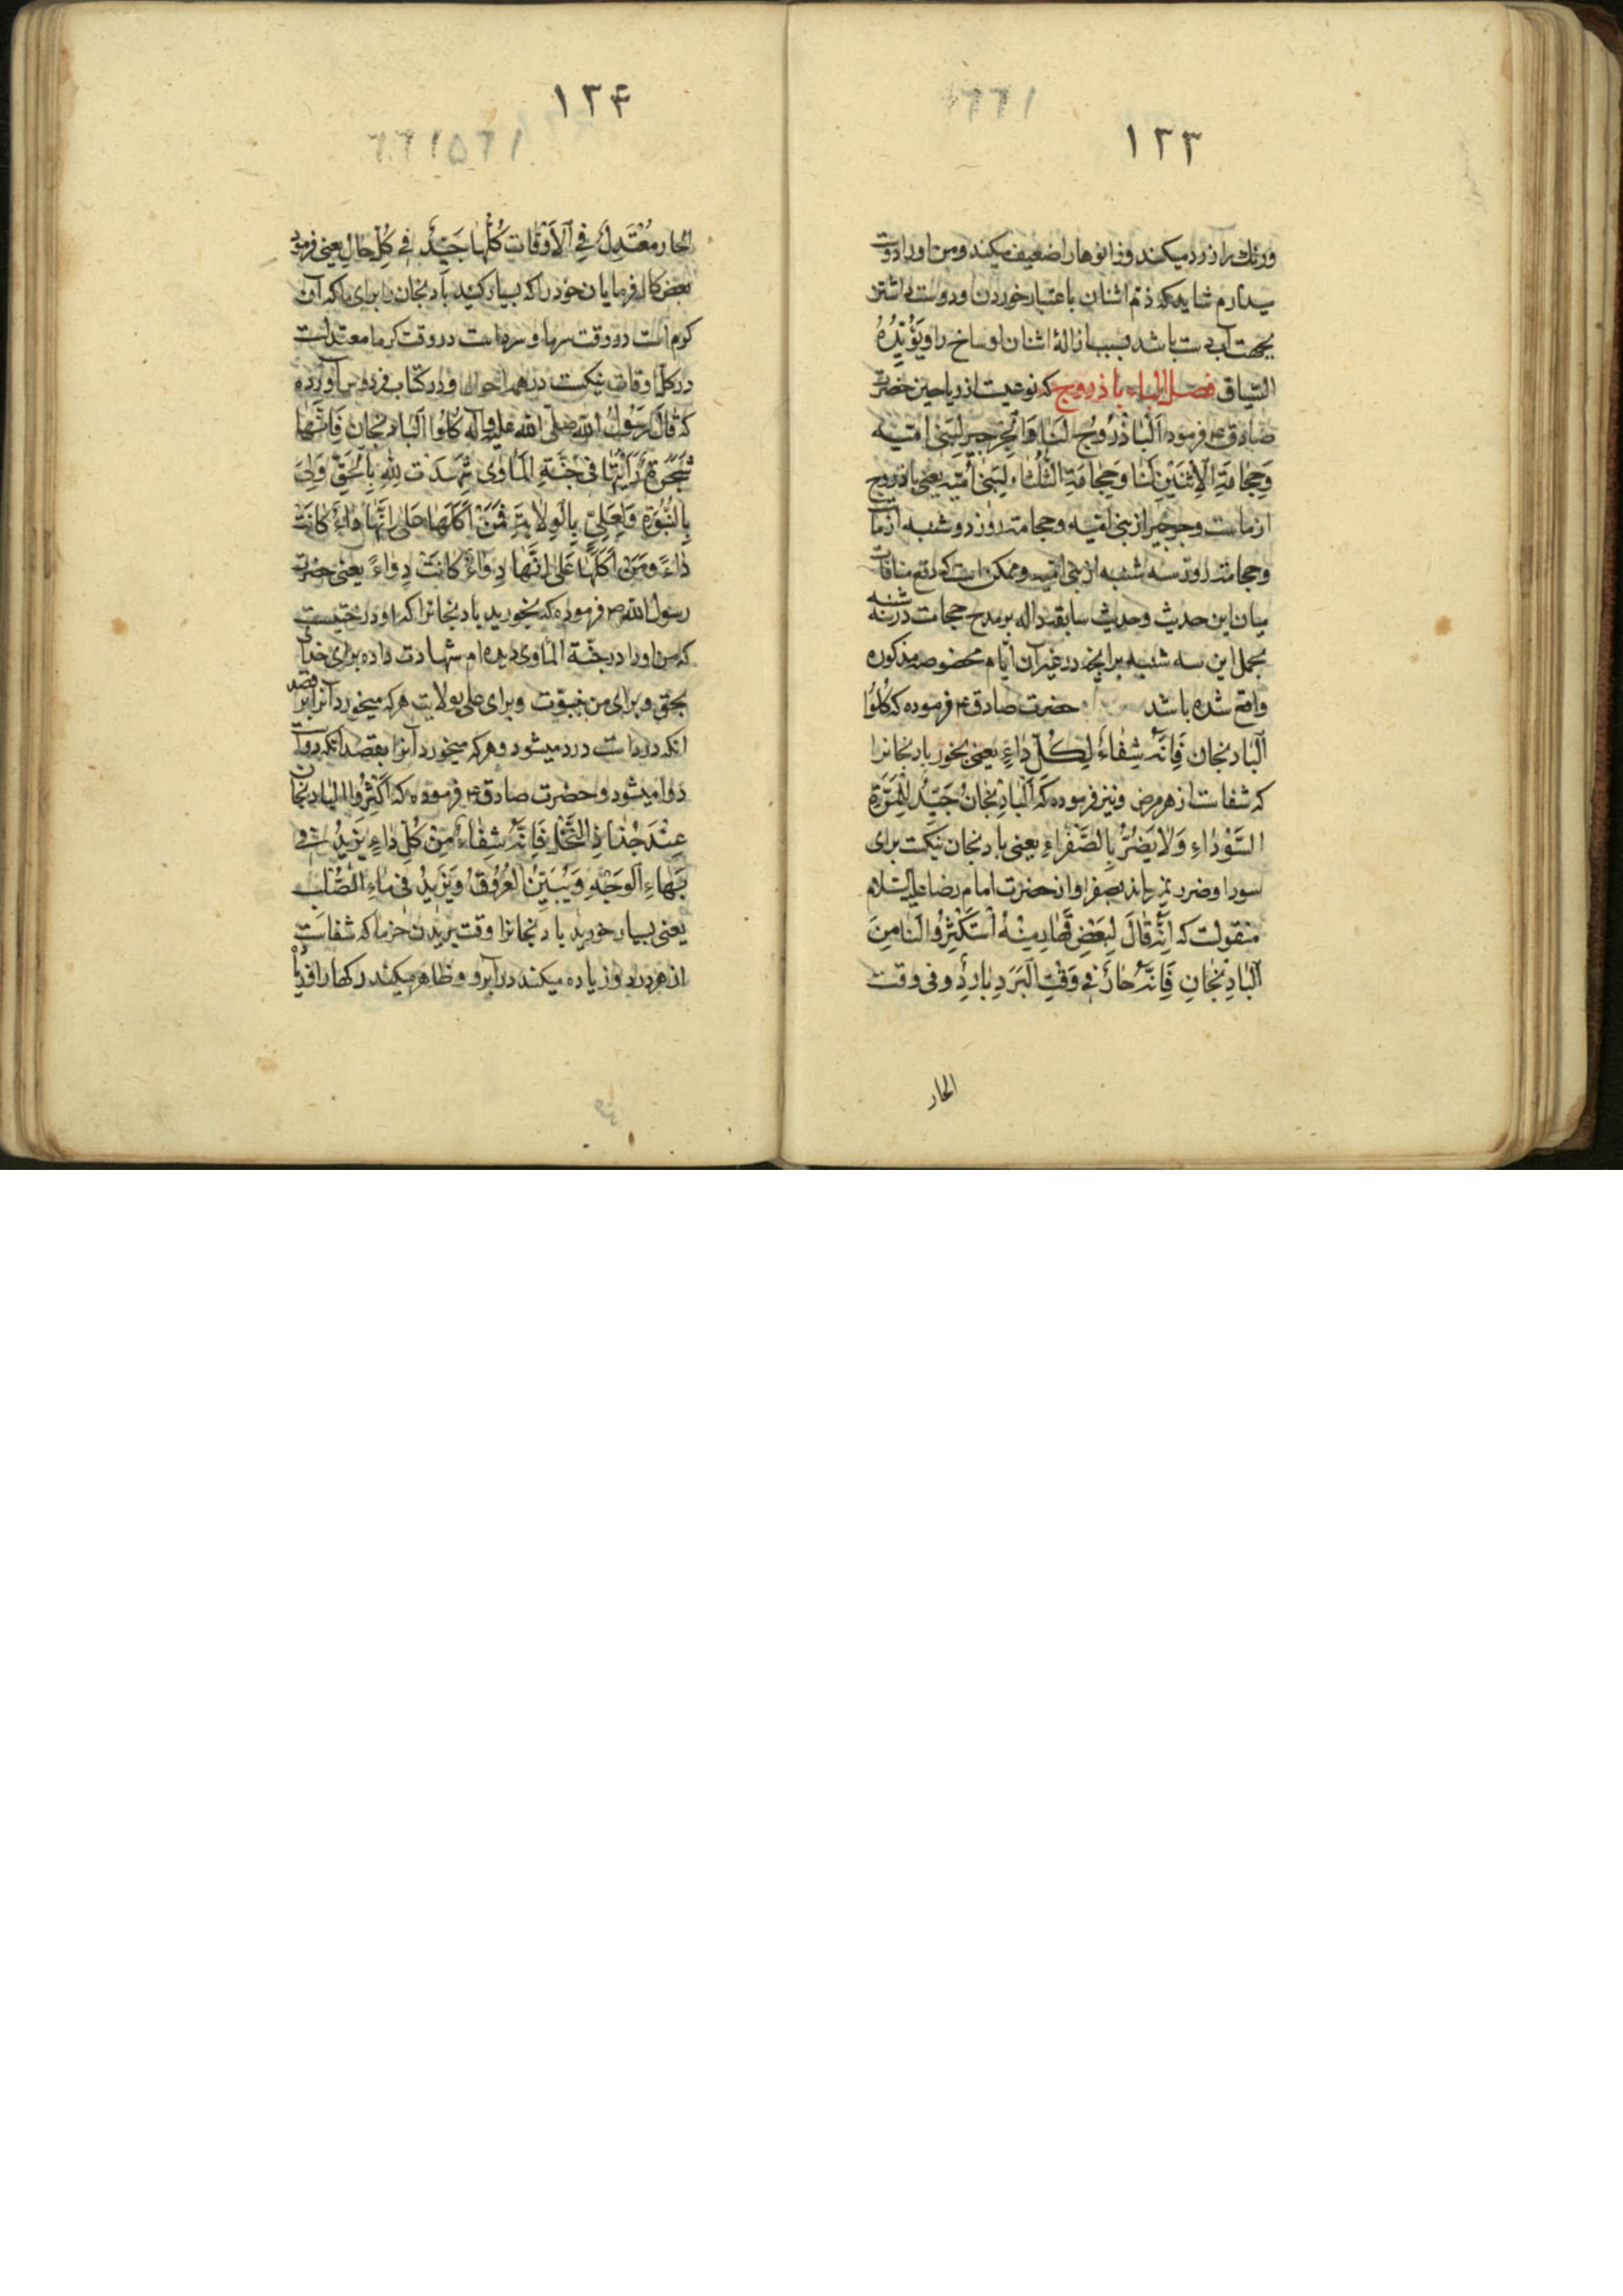 ۱۳۳
ورنك را زرد میکند وزانوها را ضعیف میکند ومن اورا دوست
میدارم شاید که ذم اشنان باعتبار خوردن ودوست داشتن
بجهت آب دست باشد بسبب ازالهٔ اشنان اوساخ را ویَؤَیِّدُهُ
السّیاق فصل الباء باذروج که نوعیست از ریاحین حضرت
صادق ع فرموده اَلْباذْرُوجُ لَنا وَالْجِرْجیرُ لِبَنی اُمَیَّه
وَحِجامَةِ الاِثْنَیْنِ لَنا وَحِجامَةِ الثَّلٰثاءِ لِبَنی اُمَیَّه یعنی باذروج
از ماست وجرجیر از بنی امّیه وحجامت روز دوشنبه از ماست
وحجامت روز سه شنبه از بنی امّیه وممکن است که دفع منافات
میان این حدیث وحدیث سابق داله بر مدح حجامت در سه شنبه
بحمل این سه شنبه بر آنچه در غیر آن ایّام مخصوصه مذکوره
واقع شده باشد حضرت صادق ع فرموده که کُلُوا
اَلْبادنجان فَاِنَّهُ شِفاءٌ لِکُلِّ داءٍ یعنی بخور بادنجانرا
که شفاست از هر مرض ونیز فرموده که اَلْبادِنْجانُ جَیِّدٌ لِلْمِرَّةِ
السَّوْداءِ وَلایَضُرُّ بِالصَّفْراءِ یعنی بادنجان نیکست برای
سودا وضرر نمیرساند بصفرا واز حضرت امام رضا علیه السّلام
منقولست که اِنَّهُ قالَ لِبَعْضِ قَهارِمِتِهُ اِسْتَکْثِرُوا لَنا مِنَ
اَلْبادِنْجانِ فَاِنَّهُ حارٌّ فی وَقْتِ الْبَرَدِ بارِدٌ وفی وقت
الحار
۱۳۴
الحار مُعْتَدِلٌ فِی الاَوْقاتِ کُلِّها جَیِّدٌ فی کُلِّ حالٍ یعنی فرمود
بعض کارفرمایان خود را که بسیار کنید بادنجان را برای ما که آن
کرم است در وقت سرما وسرد است در وقت کرما معتدلست
در کلّ اوقات نیکست در همه احوال ودر کتاب فردوس آورده
که قالَ رَسُولُ اللّهِ صلّی اللّه علیه وآله کُلُوا الْبادنجان فَاِنَّها
شَجَرَةٌ رَأَیْتُها فی جَنَّةِ الْمَاْوی شَهِدَتْ لِلّهِ بِالْحَقِّ وَلِیَ
بِالنُّبُوَّةِ وَلِعَلِیٍّ بِالْوِلایَةِ فَمَنْ اَکَلَها عَلی اَنَّها داءٌ کانَتْ
داءً ومَنْ اَکَلَها عَلی اَنَّها دِواءٌ کانَتْ دِواءً یعنی حضرت
رسول اللّه ص فرموده که بخورید بادنجانرا که او درختیست
که من اورا در جنّة المأوی دیده ام شهادت داده برای خدای
بحق وبرای من بنبوّت وبرای علی بولایت هرکه میخورد آنرا بر قصد
انکه درد است درد میشود وهرکه میخورد آنرا بقصد انکه دواست
دوا میشود وحضرت صادق ع فرموده که اَکْثِرُوا البادنجان
عِنْدَ جُذاذِ النَّخْلِ فَاِنَّهُ شِفاءٌ مِنْ کُلِّ داءٍ یَزیدُ فی
بَهاءِ الْوَجْهِ وَیُبَیِّنُ الْعُرُوقَ وَیَزیدُ فی ماءِ الصُّلْب
یعنی بسیار خورید بادنجانرا وقت بریدن خرما که شفاست
از هر درد وزیاده میکند در آبرو وظاهر میکند رکها را